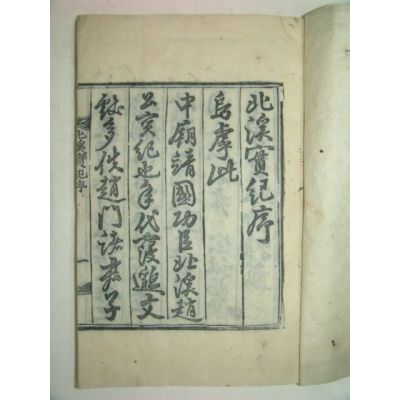 北溪實紀序
烏虖此
中廟靖國功臣北溪趙
公實紀也年代寖邈文
獻多佚趙門諸君子
北溪實紀序
一